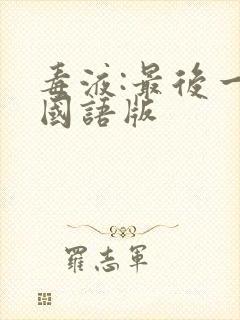 毒液:最後一
國語版
羅志軍